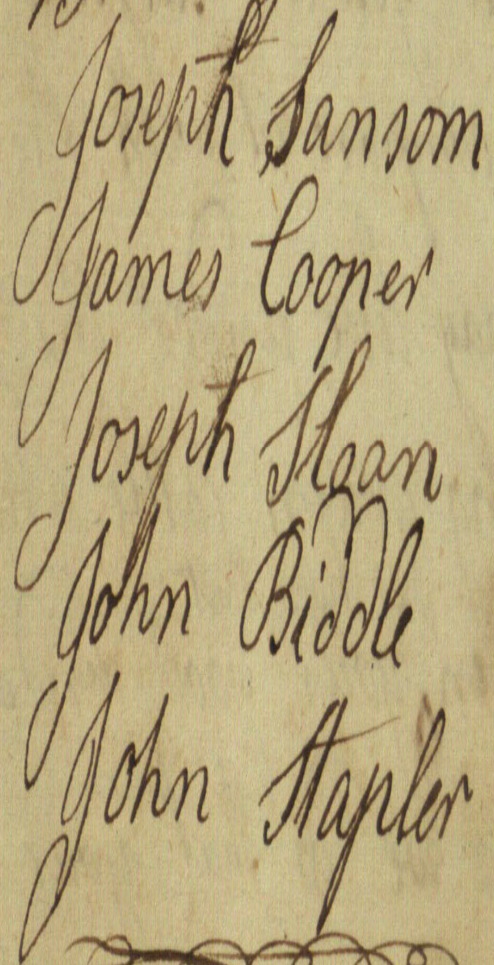 Joseph Sansom
James Cooper
Joseph Sloan
John Biddle
John Stapler